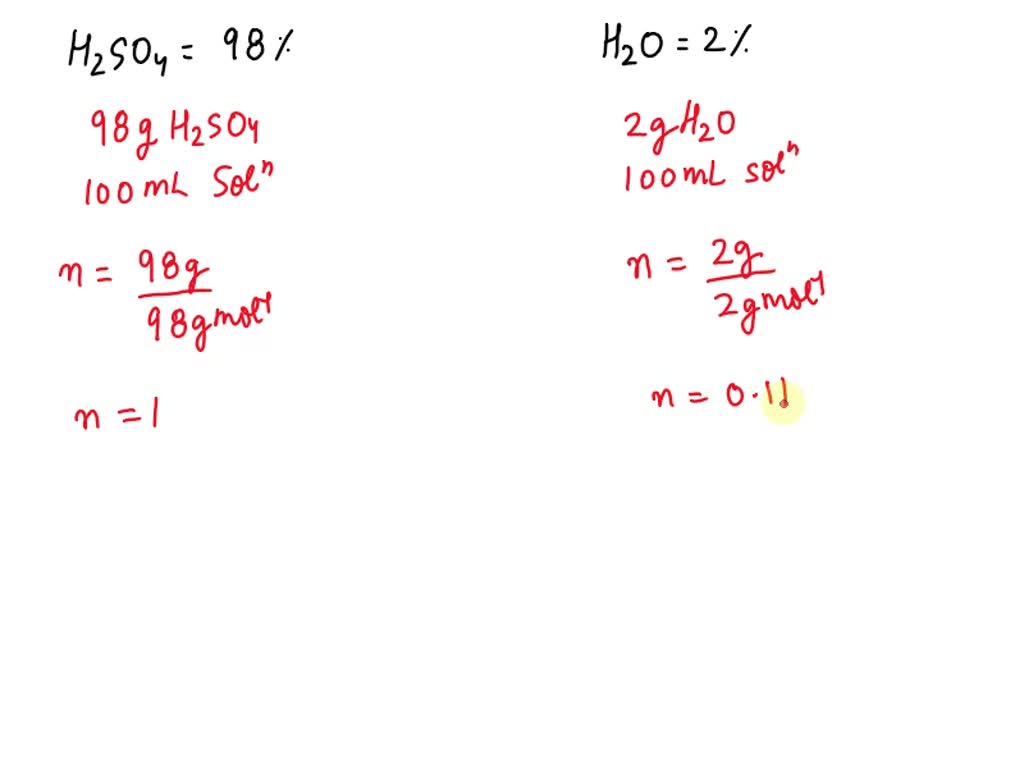 H₂SO₄ = 98%
98g H₂SO₄
100 mL Solⁿ
n = 98g / 98g mol⁻¹
n = 1
H₂O = 2%
2g H₂O
100 mL solⁿ
n = 2g / 2g mol⁻¹
n = 0.11